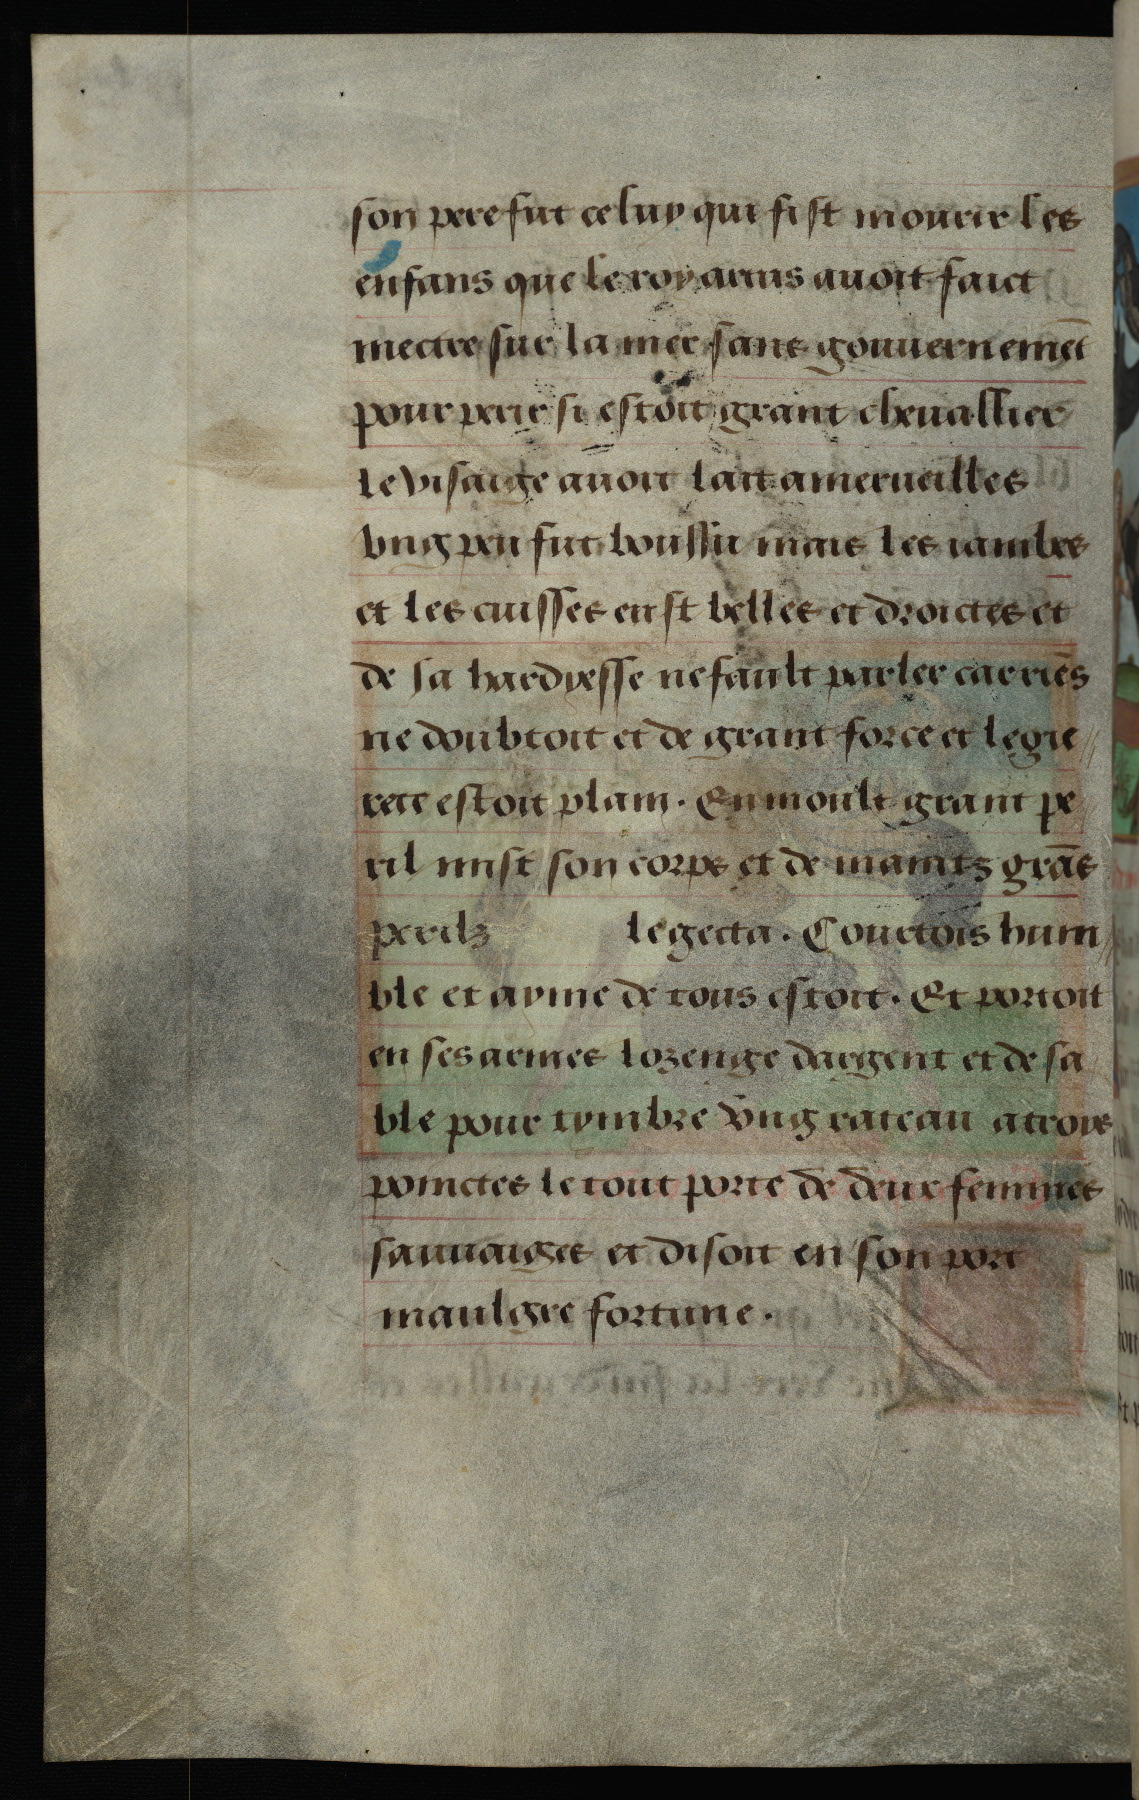 son pere fut celuy qui fist mourir les
enfans que le roy artus auoit faict
mectre sur la mer sans gouuernemēt
pour perir si estoit grant cheuallier
le visaige auoit lait amerueilles
vng peu fut boussu mais les iambes
et les cuisses eust belles et droictes et
de sa hardyesse ne fault parler car riēs
ne doubtoit et de grant force et legie
rete estoit plain. En moult grant pe
ril mist son corps et de maintz grās
perilz legecta. Courtois hum
ble et ayme de tous estoit. Et portoit
en ses armes lozenge dargent et de sa
ble pour tymbre vng rateau a trois
poinctes le tout porte de deux femmes
sauuaiges et disoit en son port
maulgre fortune.